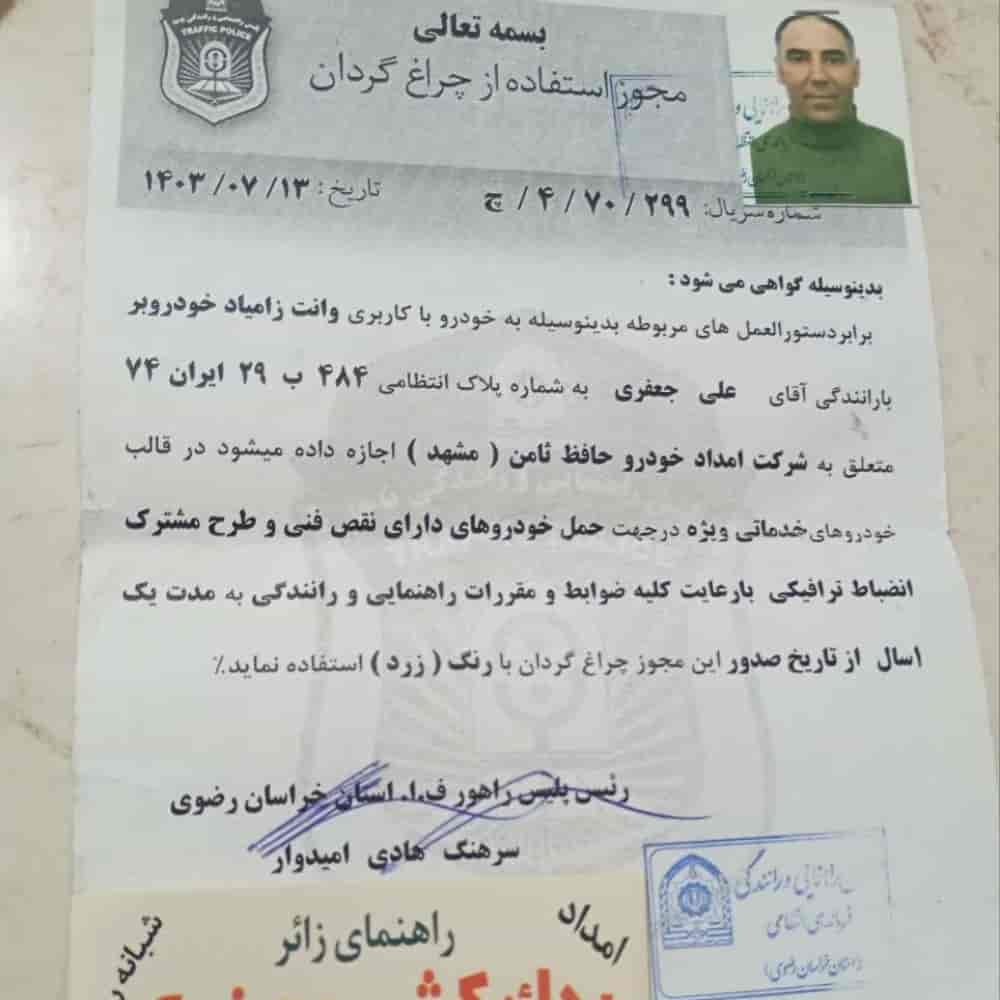 TRAFFIC POLICE
بسمه تعالی
مجوز استفاده از چراغ گردان
شماره سریال: ۲۹۹ / ۷۰ / ۴ / چ
تاریخ: ۱۴۰۳/۰۷/۱۳
بدینوسیله گواهی می شود :
برابردستورالعمل های مربوطه بدینوسیله به خودرو با کاربری وانت زامیاد خودروبر
بارانندگی آقای علی جعفری به شماره پلاک انتظامی ۴۸۴ ب ۲۹ ایران ۷۴
متعلق به شرکت امداد خودرو حافظ ثامن ( مشهد ) اجازه داده میشود در قالب
خودروهای خدماتی ویژه درجهت حمل خودروهای دارای نقص فنی و طرح مشترک
انضباط ترافیکی بارعایت کلیه ضوابط و مقررات راهنمایی و رانندگی به مدت یک
اسال از تاریخ صدور این مجوز چراغ گردان با رنگ ( زرد ) استفاده نماید.٪
رئیس پلیس راهور ف.ا. استان خراسان رضوی
سرهنگ هادی امیدوار
راهنمایی و رانندگی
فرماندهی انتظامی
(استان خراسان رضوی)
امداد
راهنمای زائر
شبانه